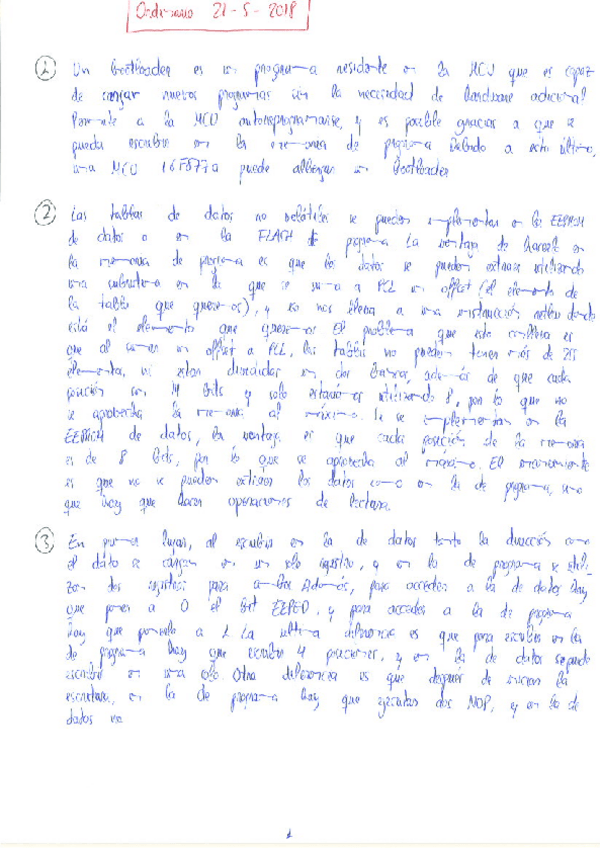 Ordinario 21-5-2018
1 Un bootloader es un programa residente en la MCU que es capaz
de cargar nuevos programas sin la necesidad de hardware adicional
Permite a la MCU autoreprogramarse, y es posible gracias a que se
pueda escribir en la memoria de programa Debido a esto último,
una MCU 16F877a puede albergar un Bootloader
2 Las tablas de datos no volátiles se pueden implementar en la EEPROM
de datos o en la FLASH de programa La ventaja de hacerlo en
la memoria de programa es que los datos se pueden extraer utilizando
una subrutina en la que se suma a PCL un offset (el elemento de
la tabla que queremos), y nos lleva a una instrucción retlw donde
está el elemento que queremos El problema que esto conlleva es
que al sumar un offset a PCL, las tablas no pueden tener más de 255
elementos, ni estar divididas en dos bancos, además de que cada
posición son 14 bits y solo estaríamos utilizando 8, por lo que no
se aprovecha la memoria al máximo. Si se implementan en la
EEPROM de datos, la ventaja es que cada posición de la memoria
es de 8 bits, por lo que se aprovecha al máximo. El inconveniente
es que no se pueden extraer los datos como en la de programa, sino
que hay que hacer operaciones de lectura.
3 En primer lugar, al escribir en la de datos tanto la dirección como
el dato se cargan en un solo registro, y en la de programa se utili-
zan dos registros para ambos Además, para acceder a la de datos hay
que poner a 0 el bit EEPGD, y para acceder a la de programa
hay que ponerlo a 1 La última diferencia es que para escribir en la
de programa hay que escribir 4 posiciones, y en la de datos se puede
escribir en una sola Otra diferencia es que después de iniciar la
escritura, en la de programa hay que ejecutar dos NOP, y en la de
datos no
1